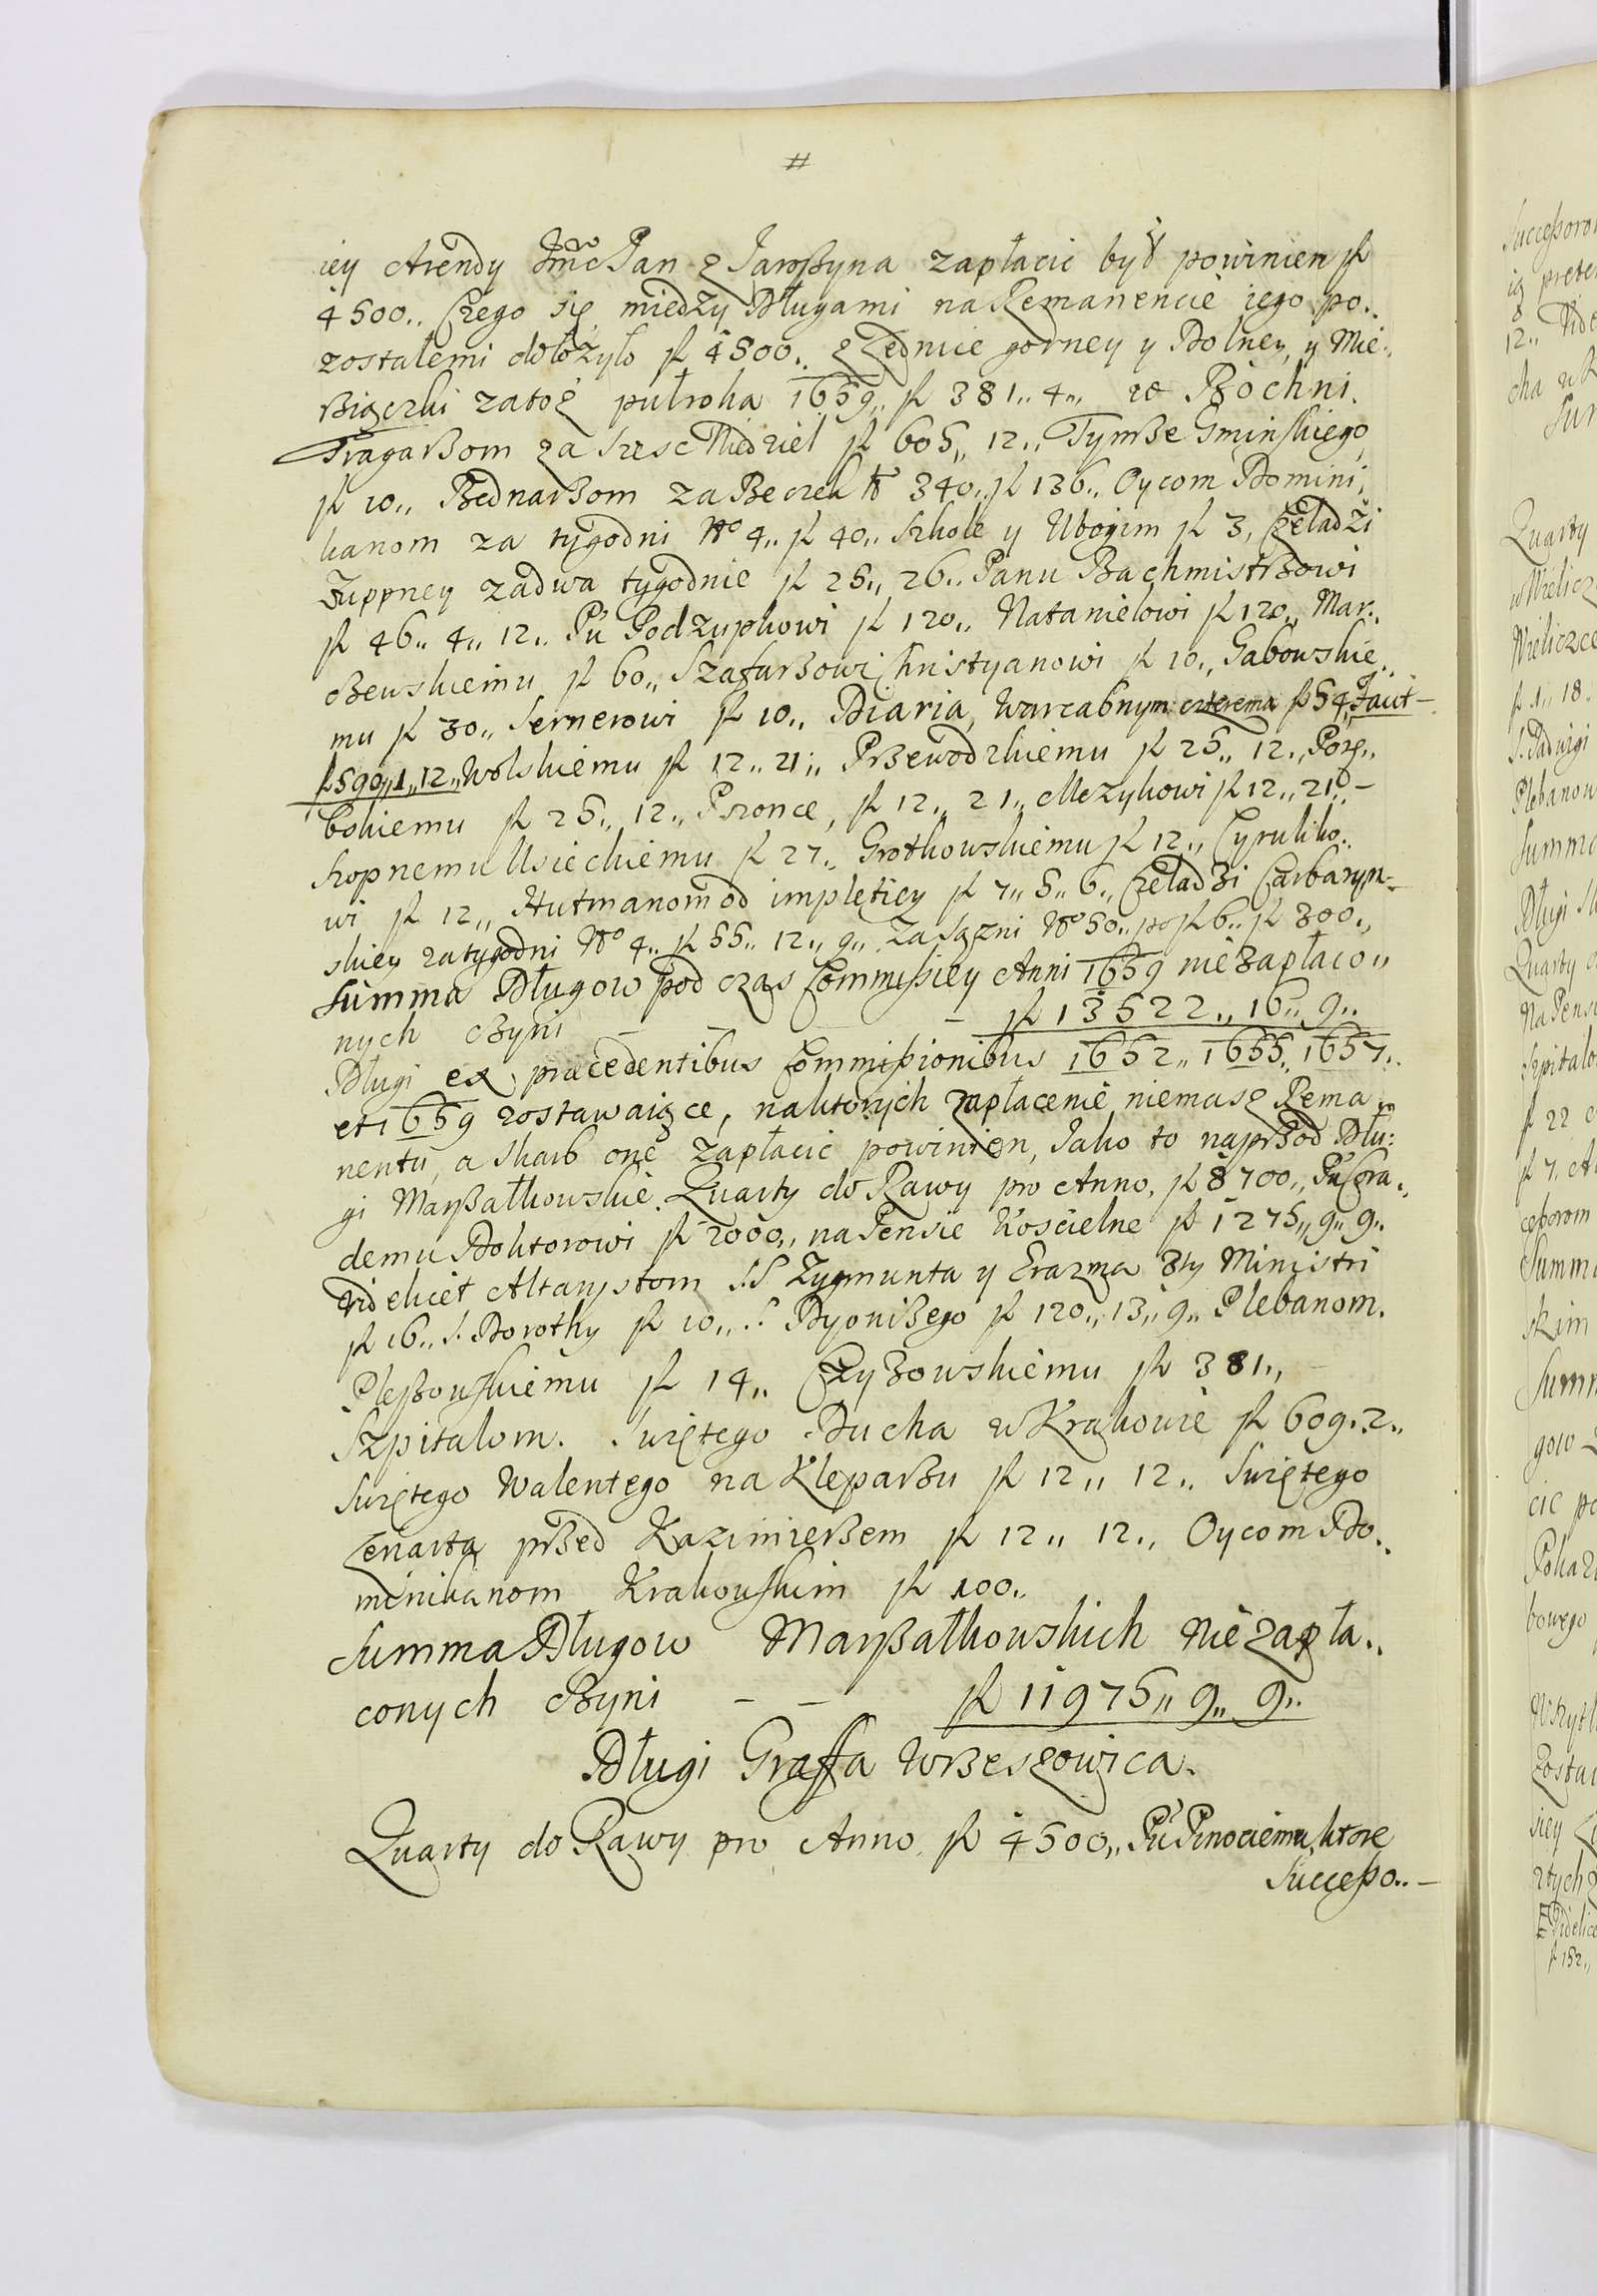 #
iey Arendy Jmc Pan z Jaroszyna zapłacic był powinien fl
4500,, Czego się miedzy Długami na Remanencie iego po,,
zostałemi dołożyło fl 4500,, z Zednice gorney y Dolney, y Mie,,
siączki zatoż pułroka 1659,, fl 381,, 4,, w Bochni.
Tragarzom za szesc Niedziel fl 605,, 12,, Tymsze Gminskiego
fl 10,, Bednarzom za Beczek No 340,, fl 136,, Oycom Domini,,
kanom za tygodni No 4,, fl 40,, Szkole y Ubogim fl 3, Czeladzi
Zuppney zadwa tygodnie fl 25,, 26,, Panu Bachmistrzowi
fl 46,, 4,, 12,, Pu Podzupkowi fl 120,, Natanielowi fl 120,, Mar,,
czewskiemu fl 60,, Szafarzowi Christyanowi fl 10,, Gabowskie,,
mu fl 30,, Sernerowi fl 10,, Diaria Warcabnym czterema fl 54,, Faict
fl 590,, 1,, 12,, Wolskiemu fl 12,, 21,, Przewodzkiemu fl 25,, 12,, Porę,,
bskiemu fl 25,, 12,, Pszonce, fl 12,, 21,, Mezykowi fl 12,, 21,, –
Szopnemu Usieckiemu fl 27,, Grotkowskiemu fl 12,, Cyruliko,,
wi fl 12,, Hutmanom od impletiey fl 7,, 5,, 6,, Czeladzi Carbaryn-
skiey za tygodni No 4,, fl 55,, 12,, 9,, Za Sązni No 50,, po fl 6,, fl 300,,
Summa Długow pod czas Commissiey Anni 1659 niezapłaco,,
nych czyni – – – fl 13522,, 16,, 9,,
Długi ex praecedentibus Commissionibus 1652,, 1655,, 1657,,
et 1659 zostawaiące, naktorych zapłacenie niemasz Rema
nentu, a Skarb one zapłacic powinien, Jako to naprzod Dłu:
gi Marszałkowskie. Quarty do Rawy pro Anno, fl 8700,, Pu Cora,,
demu Doktorowi fl 2000,, na Pensie Koscielne fl 1275,, 9,, 9,,
Videlicet Altarystom S.S Zygmunta y Erazma 3ty Ministri
fl 16,, S. Dorothy fl 10,, S. Dyonizego fl 120,, 13,, 9,, Plebanom.
Pleszowskiemu fl 14,, Czyzowskiemu fl 381,,
Szpitalom. Swiętego Ducha w Krakowie fl 609. 2,,
Swiętego Walentego na Kleparzu fl 12,, 12,, Swiętego
Lenarta przed Kazimierzem fl 12,, 12,, Oycom Do,,
minikanom Krakowskim fl 100,,
Summa Długow Marszałkowskich Niezapła,,
conych czyni – – fl 11975,, 9,, 9,,
Długi Graffa Wrzeszowica.
Quarty do Rawy pro Anno fl 4500,, Pu Pinociemu, ktore
Successo,, –